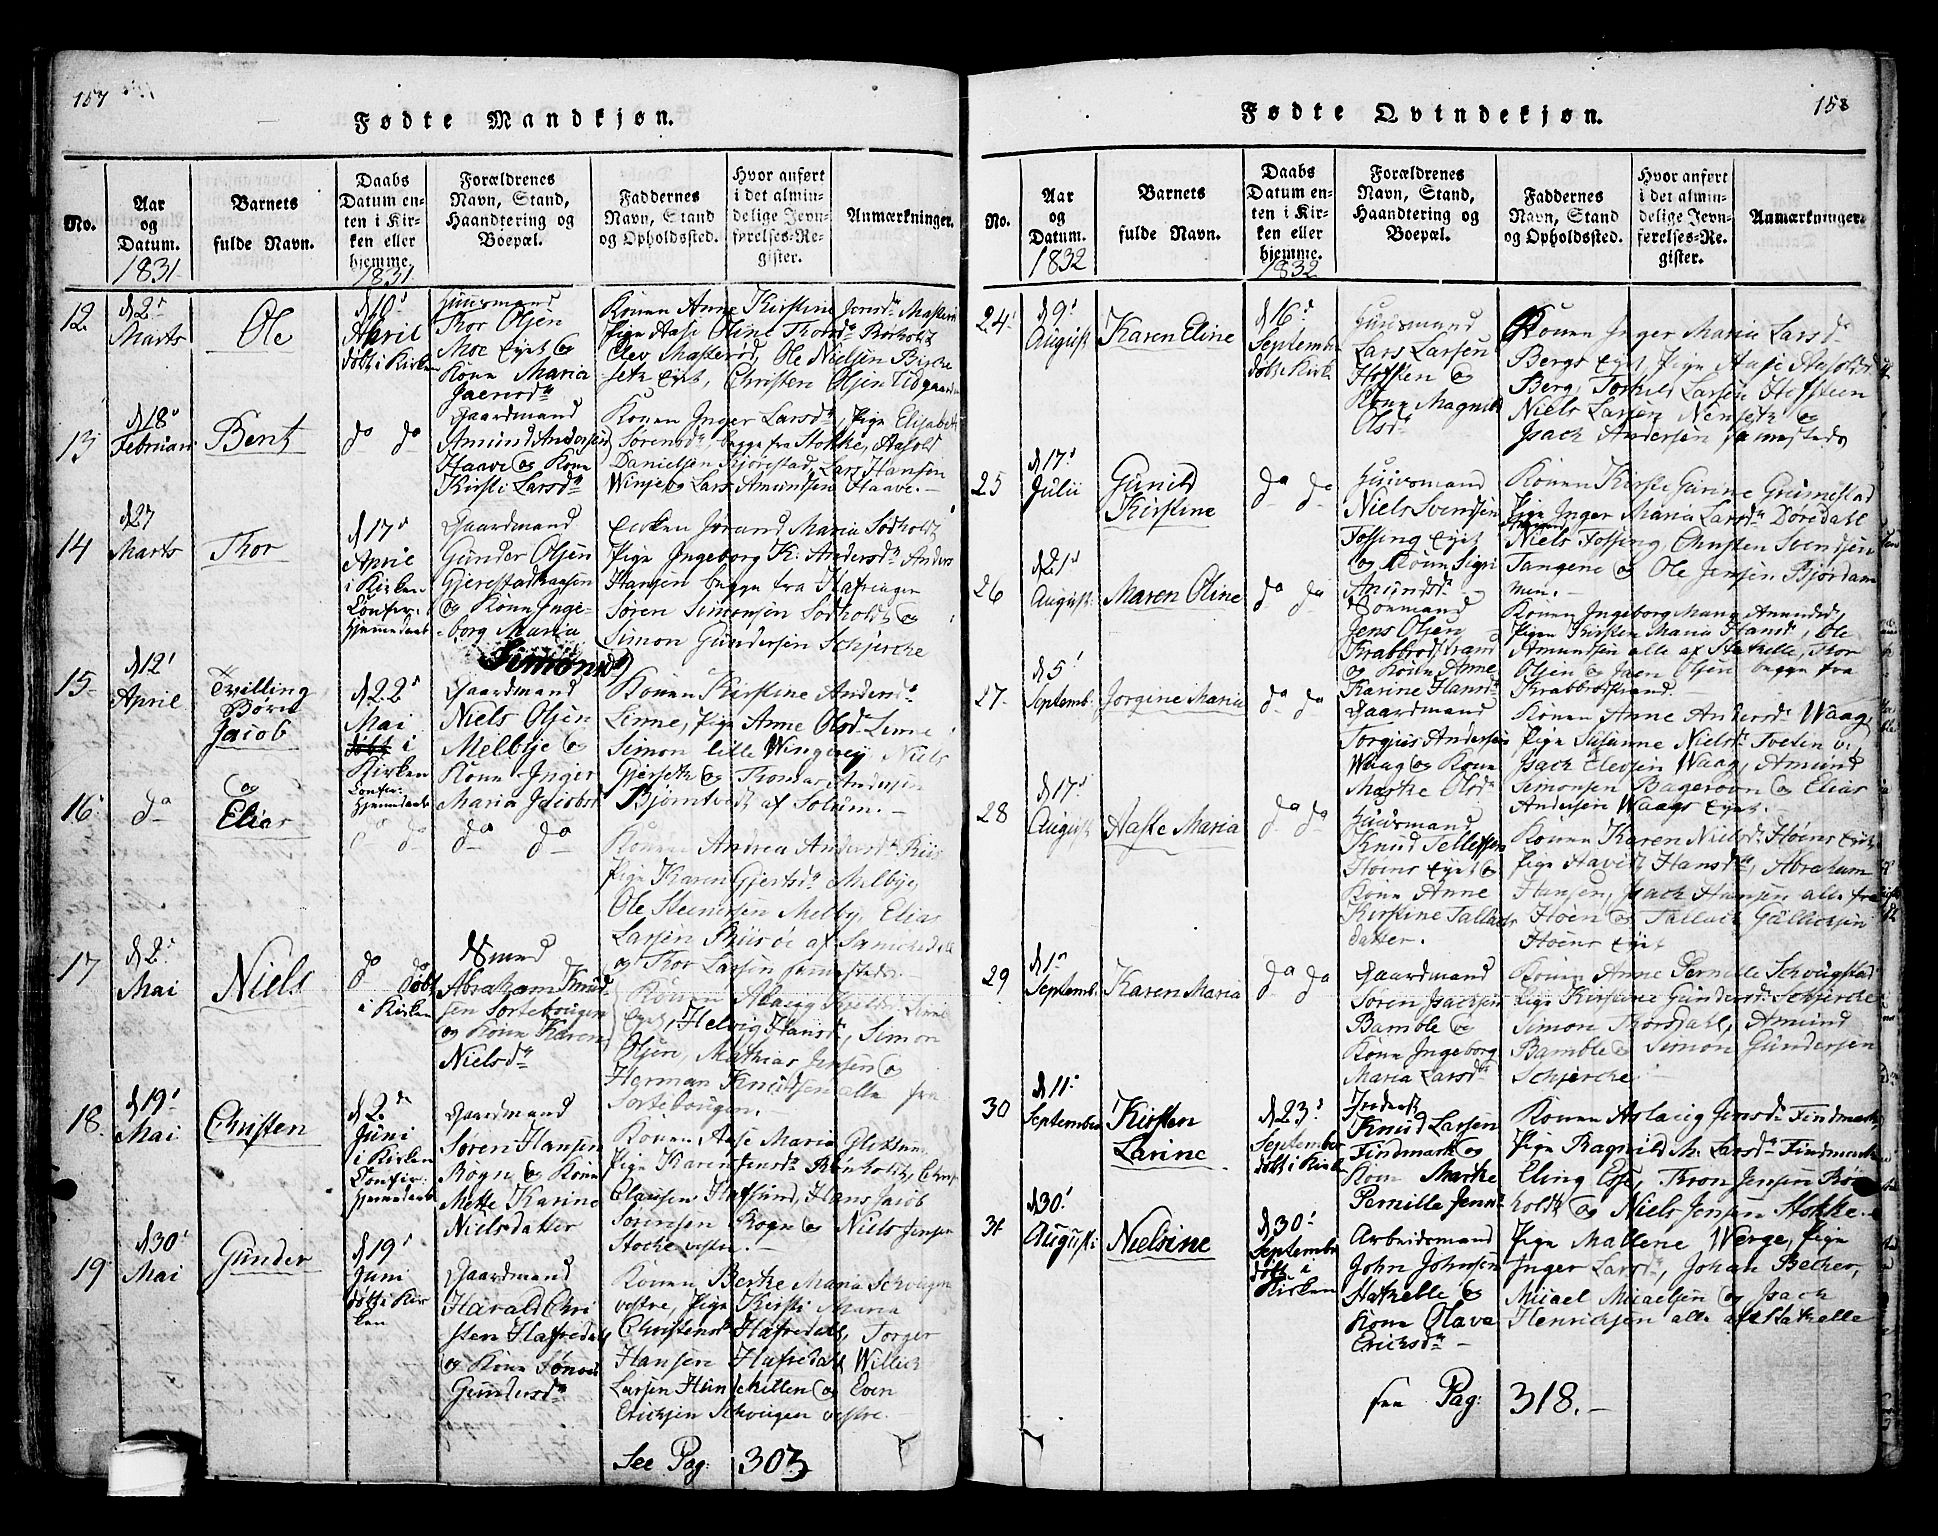 157
Fødte Mandkjøn.
No.
Aar
og
Datum.
1831
Barnets
fulde Navn.
Daabs
Datum en-
ten i Kir-
ken eller
hjemme.
1831
Forældrenes
Navn, Stand,
Haandtering og
Boepæl.
Faddernes
Navn, Stand
og Opholdssted.
Hvor anført
i det almin-
delige Jevn-
førelses-Re-
gister.
Anmærkninger.
12.
d 2d
Marts
Ole
d 10d
April
døbt i Kirken
Huusmand
Thor Olsen
Moe Eyet og
Kone Maria
Konen Anne Kirstine Jonsd.
Pige Aase Oline Thorsd. Borholt
Elev Masterød, Ole Nielsen Birke-
seth Eyet, Christen Olsen Eidgaarden
13
d 18d
Februari
Bent
do do
Gaardmand
Amund Andersen
Haave og Kone
Kirsti Larsd.
Konen Inger Larsd. Pige Elisabeth
Sørensd. begge fra Stokke, Aasold
Danielsen Bjørestad, Lars Hansen
Winje og Lars Amundsen Haave.
14
d 27
Marts
Thor
d 17d
April
i Kirken
Confer:
Hjemmedaab
Gaardmand
Gunder Olsen
Gjerestadhaasen
og Kone Inge-
borg Maria
Simonsd.
Enken Jorand Maria Sodholt
Pige Ingeborg K. Andersd. Anders
Hansen begge fra Hafringen
Søren Simonsen Sodholt og
Simon Gundersen Schjercke
15
d 12d
April
Tvilling
Børn
Jacob
d 22d
Mai
døbt i
Kirken
Confer:
Hjemmedaab
Gaardmand
Niels Olsen
Melbye og
Kone Inger
Maria Jacobsd.
Konen Kirstine Andersd.
Linne, Pige Anne Olsd. Linne
Simon lille Wingerej, Niels
Gjerseth og Thomas Andersen
Bjørntvedt af Solum.
16
do
og
Elias
do do
do do
Konen Andrea Andersd. Riis
Pige Karen Gjertsd. Melbye,
Ole Steensen Melby, Elias
Larsen Riisøe af Sannikedal
og Thor Larsen sammesteds.
17
d 2d
Mai
Niels
do døbt
i Kirken
Abraham Knud-
sen Sortebougen
og Kone Karen
Nielsd.
Konen Aslaug Kjeldsd. Linne
Eyet, Helvig Hansd., Simon
Olsen, Mathias Jensen og
Herman Knudsen alle fra
Sortebougen.
18.
d 19d
Mai
Christen
d 2den
Juni
i Kirken
Confer:
Hjemmedaab
Gaardmand
Søren Hansen
Rogn og Kone
Mette Karine
Nielsdatter
Konen Aase Maria Glittum
Pige Karen Jensd. Rønholt, Christ
Clausen Hafsund, Hans Jacob
Sørensen Rogn og Niels Jensen
Stocke vestre.
19
d 30d
Mai
Gunder
d 19d
Juni
døbt i Kir
ken
Gaardmand
Harald Chri
sten Hafredal
og Kone Tønne
Gundersd.
Konen Berthe Maria Schougen
vestre, Pige Kirsti Maria
Christensd. Hafredal, Torger
Hansen Hafredahl Willich
Larsen Hun skillen og Even
Erichsen Schougen vestre.
See Pag: 303
158
Fødte Qvindekjøn.
No.
Aar
og
Datum.
1832
Barnets
fulde Navn.
Daabs
Datum en-
ten i Kir-
ken eller
hjemme.
1832
Forældrenes
Navn, Stand,
Haandtering og
Boepæl.
Faddernes
Navn, Stand
og Opholdssted.
Hvor anført
i det almin-
delige Jevn-
førelses-Re-
gister.
Anmærkninger.
24
d 9d
August
Karen Eline
d 16d
September
døbt i Kirk
Huusmand
Lars Larsen
Hofsten og
Kone Magnild
Olsd.
Konen Inger Maria Larsd.
Bergs Eyet, Pige Aase Aasoldsd.
Berg, Torkild Larsen Hofsteen
Niels Larsen Nenseth og
Isach Andersen sammesteds
25
d 17d
Julii
Gunild
Kirstine
do do
Huusmand
Niels Svendsen
Fossing Eyet
og Kone Sigri
Amundsd.
Konen Kirste Gurine Grumestad
Pige Inger Maria Larsd. Doredahl
Niels Fossing, Christen Svendsen
Tangene og Ole Jensen Bjordam
men.
26
d 21d
August
Maren Oline
do do
Søemand
Jens Olsen
Krabbrodstrand
og Kone Anne
Karine Hansd.
Konen Ingeborg Mang Amundsd,
Pigen Kirsten Maria Hansd, Ole
Amundsen alle af Stathelle, Thor
Olsen og Jaen Olsen begge fra
Krabbrodstrand.
27
d 5d
Septemb.
Jorgine Maria
do do
Gaardmand
Sorgius Andersen
Waag og Kone
Marthe Olsd.
Konen Anne Andersd. Waag
Pige Susanne Nielsd. Tveden v.
Isach Elevsen Waag, Amund
Simonsen Bagerovn og Elias
Andersen Waags Eyet.
28
d 17d
August
Aaste Maria
do do
Huusmand
Knud Tellefsen
Høens Eyet og
Kone Anne
Kirstine Tallachs
datter.
Konen Karen Nielsd. Høens Eyet
Pige Havild Hansd., Abraham
Hansen, Isach Hansen alle fra
Høen og Tallach Gullichsen
Høens Eyet
29
d 1d
Septemb.
Karen Maria
do do
Gaardmand
Søren Isachsen
Bamble og
Kone Ingeborg
Maria Larsd.
Konen Anne Pernille Schougstad
Pige Kirstine Gundersd. Schjercke
Simon Thorsdahl, Amund
Bamble og Simon Gundersen
Schjercke.
30
d 11d
September
Kirsten
Larine
d 23d
September
døbt i Kirk
Inderst
Knud Larsen
Findmark og
Kone Marthe
Pernille Jensd.
Konen Aslaug Jensd. Findmark
Pige Ragnild M. Larsd. Findmark
Eling Esse, Thron Jensen Røn
holt og Niels Jensen Stokke.
31
d 30d
August
Nielsine
d 30d
Septemb.
døbt i
Kirken
Arbeidsmand
John Johnsen
Stathelle og
Kone Olava
Ericksd.
Pige Mallene Werge, Pige
Inger Larsd., Johan Becker,
Micael Micaelsen og Isach
Henrichsen alle af Stathelle
see Pag: 318.